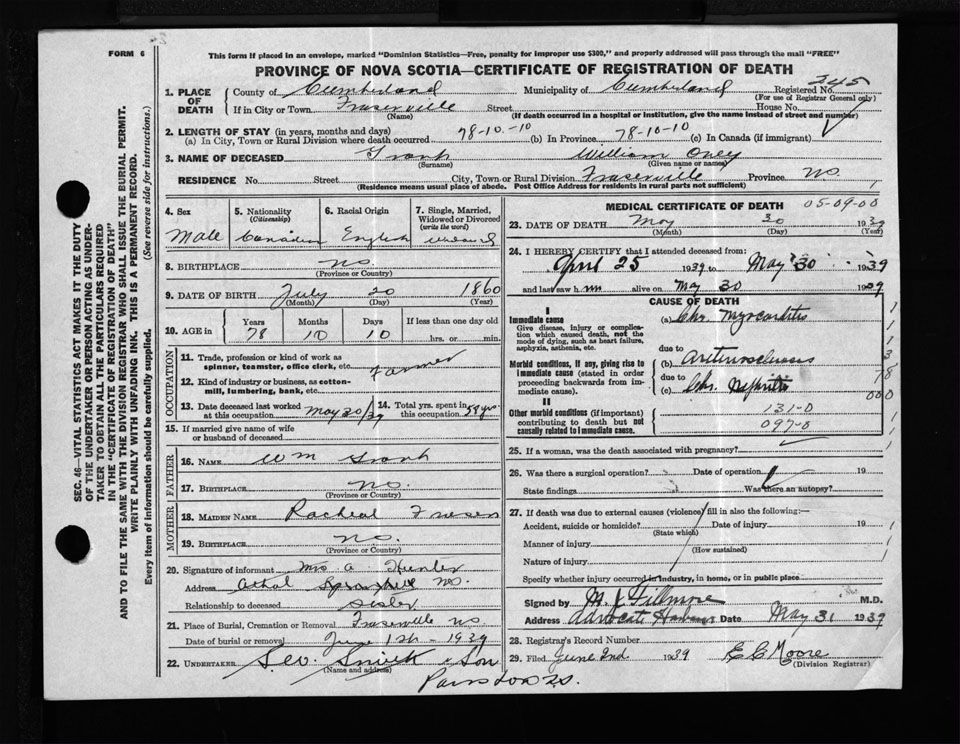 FORM 6
This form if placed in an envelope, marked "Dominion Statistics—Free, penalty for improper use $300," and properly addressed will pass through the mail "FREE"
PROVINCE OF NOVA SCOTIA—CERTIFICATE OF REGISTRATION OF DEATH
SEC. 46—VITAL STATISTICS ACT MAKES IT THE DUTY
OF THE UNDERTAKER OR PERSON ACTING AS UNDER-
TAKER TO OBTAIN ALL THE PARTICULARS REQUIRED
IN THE "CERTIFICATE OF REGISTRATION OF DEATH"
AND TO FILE THE SAME WITH THE DIVISION REGISTRAR WHO SHALL ISSUE THE BURIAL PERMIT.
WRITE PLAINLY WITH UNFADING INK. THIS IS A PERMANENT RECORD.
Every item of information should be carefully supplied. (See reverse side for instructions.)
1. PLACE OF DEATH
County of Cumberland Municipality of Cumberland Registered No. 245
(For use of Registrar General only)
If in City or Town Fraserville Street House No.
(Name) (If death occurred in a hospital or institution, give the name instead of street and number)
2. LENGTH OF STAY (in years, months and days)
(a) In City, Town or Rural Division where death occurred 78-10-10 (b) In Province 78-10-10 (c) In Canada (if immigrant)
3. NAME OF DECEASED Frank William
(Surname) (Given name or names)
RESIDENCE No. Street City, Town or Rural Division Fraserville Province N.S.
(Residence means usual place of abode. Post Office Address for residents in rural parts not sufficient)
4. Sex Male
5. Nationality (Citizenship) Canadian
6. Racial Origin English
7. Single, Married, Widowed or Divorced (write the word)
8. BIRTHPLACE N.S.
(Province or Country)
9. DATE OF BIRTH July 20 1860
(Month) (Day) (Year)
10. AGE in Years Months Days If less than one day old
78 10 10 hrs. or min.
OCCUPATION
11. Trade, profession or kind of work as spinner, teamster, office clerk, etc. Farmer
12. Kind of industry or business, as cotton-mill, lumbering, bank, etc.
13. Date deceased last worked at this occupation May 30/39
14. Total yrs. spent in this occupation 58 yrs.
15. If married give name of wife or husband of deceased
FATHER
16. NAME Wm Frank
17. BIRTHPLACE N.S.
(Province or Country)
MOTHER
18. MAIDEN NAME Racheal
19. BIRTHPLACE N.S.
(Province or Country)
20. Signature of informant Mrs A Hunter
Address Athol N.S.
Relationship to deceased Sister
21. Place of Burial, Cremation or Removal Fraserville N.S.
Date of burial or removal June 1st - 1939
22. UNDERTAKER Smith & Son
(Name and address)
MEDICAL CERTIFICATE OF DEATH 05-09-00
23. DATE OF DEATH May 30 1939
(Month) (Day) (Year)
24. I HEREBY CERTIFY that I attended deceased from:
April 25 1939 to May 30 1939
and last saw him alive on May 30 1939
CAUSE OF DEATH
I
Immediate cause (a) Chr. Myocarditis
Give disease, injury or complication which caused death, not the mode of dying, such as heart failure, asphyxia, asthenia, etc.
due to
Morbid conditions, if any, giving rise to immediate cause (stated in order proceeding backwards from immediate cause).
(b) Arteriosclerosis
due to
(c) Chr. Nephritis
II
Other morbid conditions (if important) contributing to death but not causally related to immediate cause.
131-0
097-0
25. If a woman, was the death associated with pregnancy?
26. Was there a surgical operation Date of operation 19
State findings Was there an autopsy?
27. If death was due to external causes (violence) fill in also the following:—
Accident, suicide or homicide? Date of injury 19
(State which)
Manner of injury
(How sustained)
Nature of injury
Specify whether injury occurred in industry, in home, or in public place
Signed by M. J. Fillmore M.D.
Address Advocate Harbour Date May 31 1939
28. Registrar's Record Number
29. Filed June 2nd 1939 E C Moore
(Division Registrar)